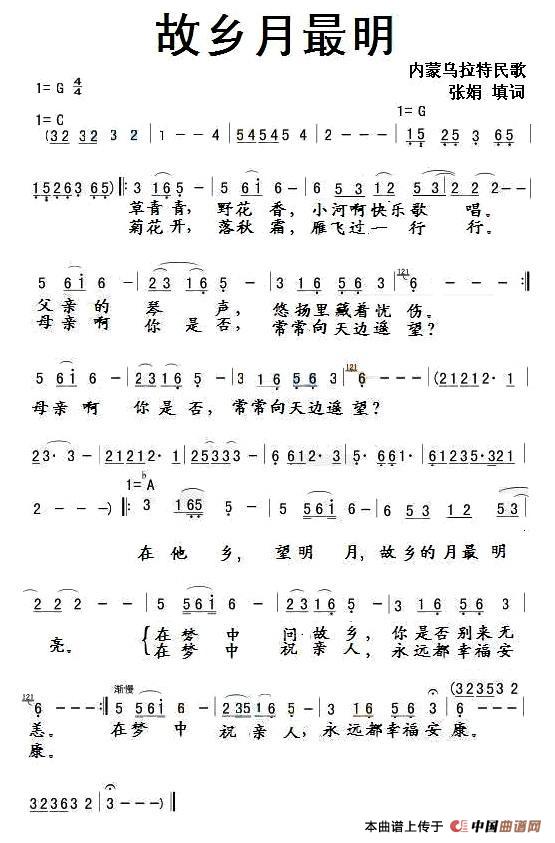 故乡月最明
内蒙乌拉特民歌
1= G 4/4
张娟 填词
1= C
1= G
(32 32 3 2 | 1 - - 4 | 5454545 4 | 2 - - - | 15 25 3 65 |
15263 65) ‖: 3 165 - | 5 6i 6 - | 6 53 12 53 | 2 2 2 - |
草青青，野花香，小河啊快乐歌唱。
菊花开，落秋霜，雁飞过一行行。
5 6i 6 - | 23 165 - | 3 16 56 3 | 121 6 - - - |
父亲的琴声，悠扬里藏着忧伤。
母亲啊你是否，常常向天边遥望？
5 6i 6 - | 23 16 5 - | 3 16 56 3 | 121 6 - - - | (21212· 1 |
母亲啊你是否，常常向天边遥望？
23· 3 - | 21212· 1 | 25333 - | 6 612· 3 | 5· 661· | 61235·321 |
1=♭A
2 - - -) ‖: 3 165 - | 5 56i 6 - | 6 53 12 53 |
在他乡，望明月，故乡的月最明
2 2 2 - | 5 56i 6 - | 23 16 5 - | 3 16 56 3 |
亮。 在梦中问故乡，你是否别来无
在梦中祝亲人，永远都幸福安
121 渐慢 (32353 2
6 - - :‖ 5 56i 6 - | 235 16 5 - | 3 16 56 3 | 6 - - - |
恙。 在梦中祝亲人，永远都幸福安康。
康。
323633 32 | 3 - - -)‖
本曲谱上传于 中国曲谱网